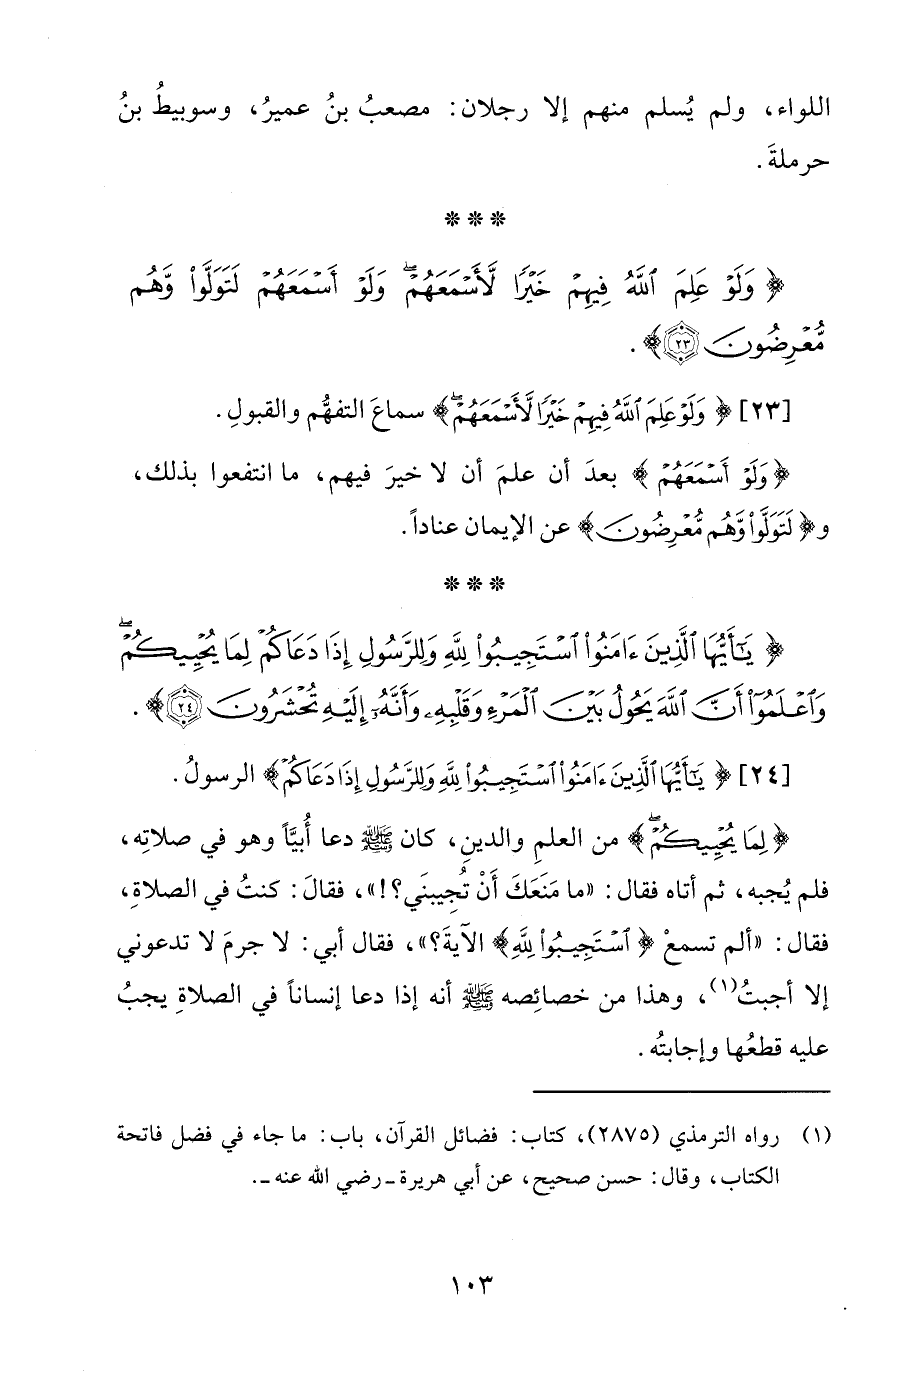 اللواء، ولم يُسلم منهم إلا رجلان: مصعبُ بنُ عميرُ، وسوبيطُ بنُ
حرملةَ.
* * *
﴿ وَلَوْ عَلِمَ ٱللَّهُ فِيهِمْ خَيْرًا لَّأَسْمَعَهُمْ ۖ وَلَوْ أَسْمَعَهُمْ لَتَوَلَّوا۟ وَّهُم
مُّعْرِضُونَ ٢٣ ﴾.
[٢٣] ﴿ وَلَوْ عَلِمَ ٱللَّهُ فِيهِمْ خَيْرًا لَّأَسْمَعَهُمْ ۖ﴾ سماعَ التفهُّم والقبولِ.
﴿ وَلَوْ أَسْمَعَهُمْ ﴾ بعدَ أن علمَ أن لا خيرَ فيهم، ما انتفعوا بذلك،
و﴿ لَتَوَلَّوا۟ وَّهُم مُّعْرِضُونَ ﴾ عن الإيمان عناداً.
* * *
﴿ يَـٰٓأَيُّهَا ٱلَّذِينَ ءَامَنُوا۟ ٱسْتَجِيبُوا۟ لِلَّهِ وَلِلرَّسُولِ إِذَا دَعَاكُمْ لِمَا يُحْيِيكُمْ ۖ
وَٱعْلَمُوٓا۟ أَنَّ ٱللَّهَ يَحُولُ بَيْنَ ٱلْمَرْءِ وَقَلْبِهِۦ وَأَنَّهُۥٓ إِلَيْهِ تُحْشَرُونَ ٢٤ ﴾.
[٢٤] ﴿ يَـٰٓأَيُّهَا ٱلَّذِينَ ءَامَنُوا۟ ٱسْتَجِيبُوا۟ لِلَّهِ وَلِلرَّسُولِ إِذَا دَعَاكُمْ ﴾ الرسولُ.
﴿ لِمَا يُحْيِيكُمْ ۖ﴾ من العلمِ والدينِ، كان ﷺ دعا أُبيَّاً وهو في صلاتِه،
فلم يُجبه، ثم أتاه فقال: «ما مَنَعَكَ أَنْ تُجِيبنَي؟!»، فقالَ: كنتُ في الصلاةِ،
فقال: «ألم تسمعْ ﴿ ٱسْتَجِيبُوا۟ لِلَّهِ ﴾ الآيةَ؟»، فقال أبي: لا جرمَ لا تدعوني
إلا أجبتُ(١)، وهذا من خصائِصه ﷺ أنه إذا دعا إنساناً في الصلاةِ يجبُ
عليه قطعُها وإجابتُه.
(١) رواه الترمذي (٢٨٧٥)، كتاب: فضائل القرآن، باب: ما جاء في فضل فاتحة
الكتاب، وقال: حسن صحيح، عن أبي هريرة ـ رضي الله عنه ـ.
١٠٣